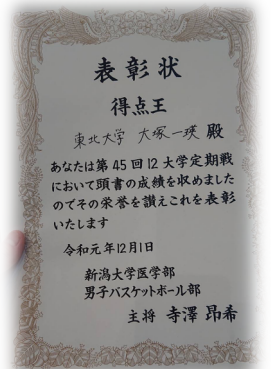 表彰状
得点王
東北大学 大塚一瑛 殿
あなたは第45回12大学定期戦
において頭書の成績を収めました
のでその栄誉を讃えこれを表彰
いたします
令和元年12月1日
新潟大学医学部
男子バスケットボール部
主将 寺澤 昂希